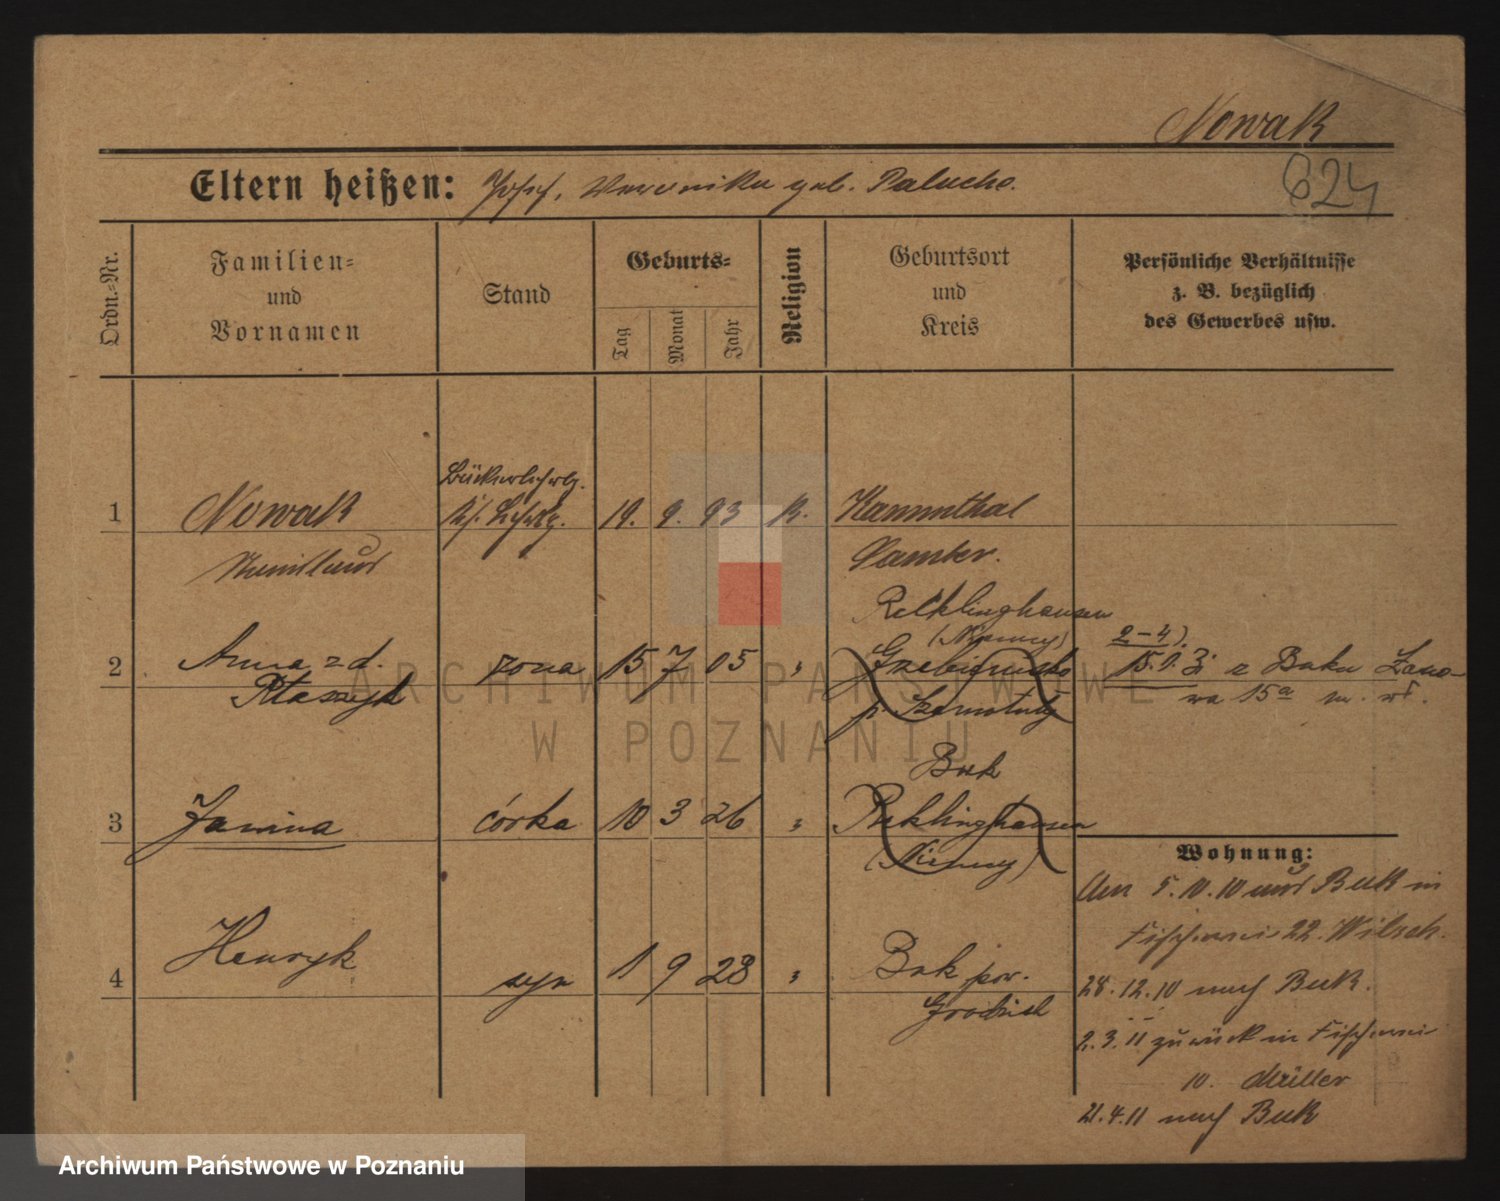 Nowak
624
Eltern heißen: Josef, Veronika geb. Palucho.
Ordn.-Nr.
Familien- und Vornamen
Stand
Geburts-
Tag
Monat
Jahr
Religion
Geburtsort und Kreis
Persönliche Verhältnisse
z. B. bezüglich
des Gewerbes usw.
1 Nowak
19. 9. 93 K. Kammthal
Samter.
Recklinghausen
(Niemcy)
2 Anna z d. żona 15 7 05 "
Ptaszyk
p. Szamotuły
2-4)
z Buku
Buk
3 Janina córka 10 3 26 " Reklinghausen
(Niemcy)
4 Henryk syn 1 9 28 " Buk pow.
Grodzisk
Wohnung:
5.10.10 Buk in
Fischerei 22.
28.12.10 nach Buk.
2.3.11 zurück in Fischerei
10. Müller
21.4.11 nach Buk
ARCHIWUM PAŃSTWOWE
W POZNANIU
Archiwum Państwowe w Poznaniu